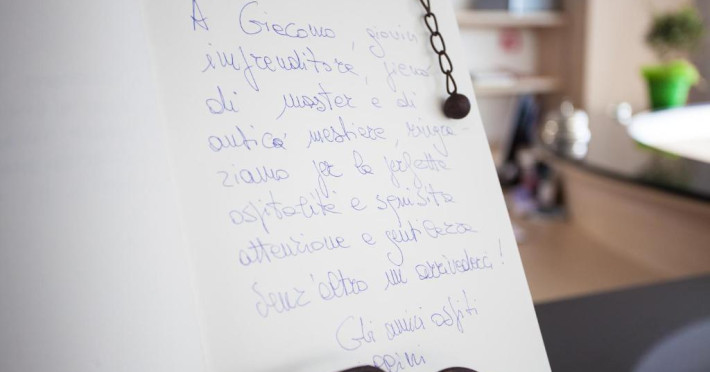 A Giacomo, giovin
imprenditore, pieno
di master e di
antico mestiere, ringra-
ziamo per la perfetta
ospitalità e squisita
attenzione e gentilezza
Senz'altro un arrivederci!
Gli amici ospiti